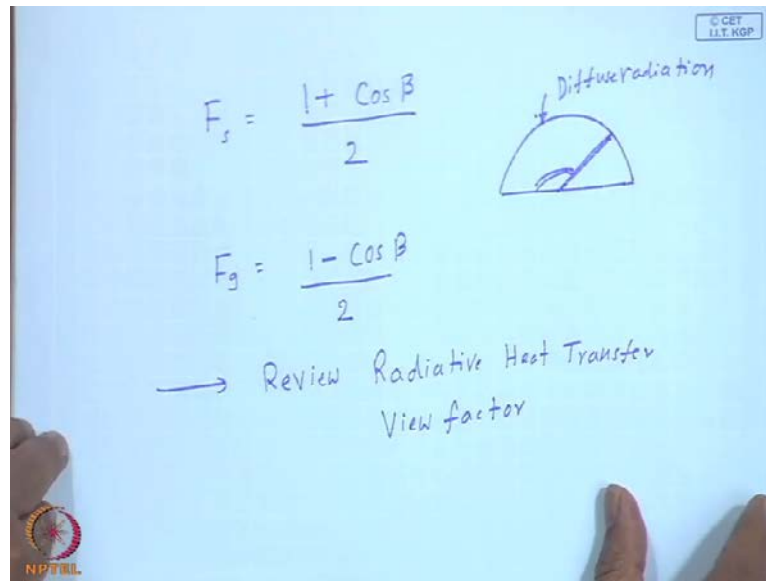 © CET
I.I.T. KGP
Diffuse radiation
F_s = (1 + Cos β) / 2
F_g = (1 - Cos β) / 2
→ Review Radiative Heat Transfer
View factor
NPTEL